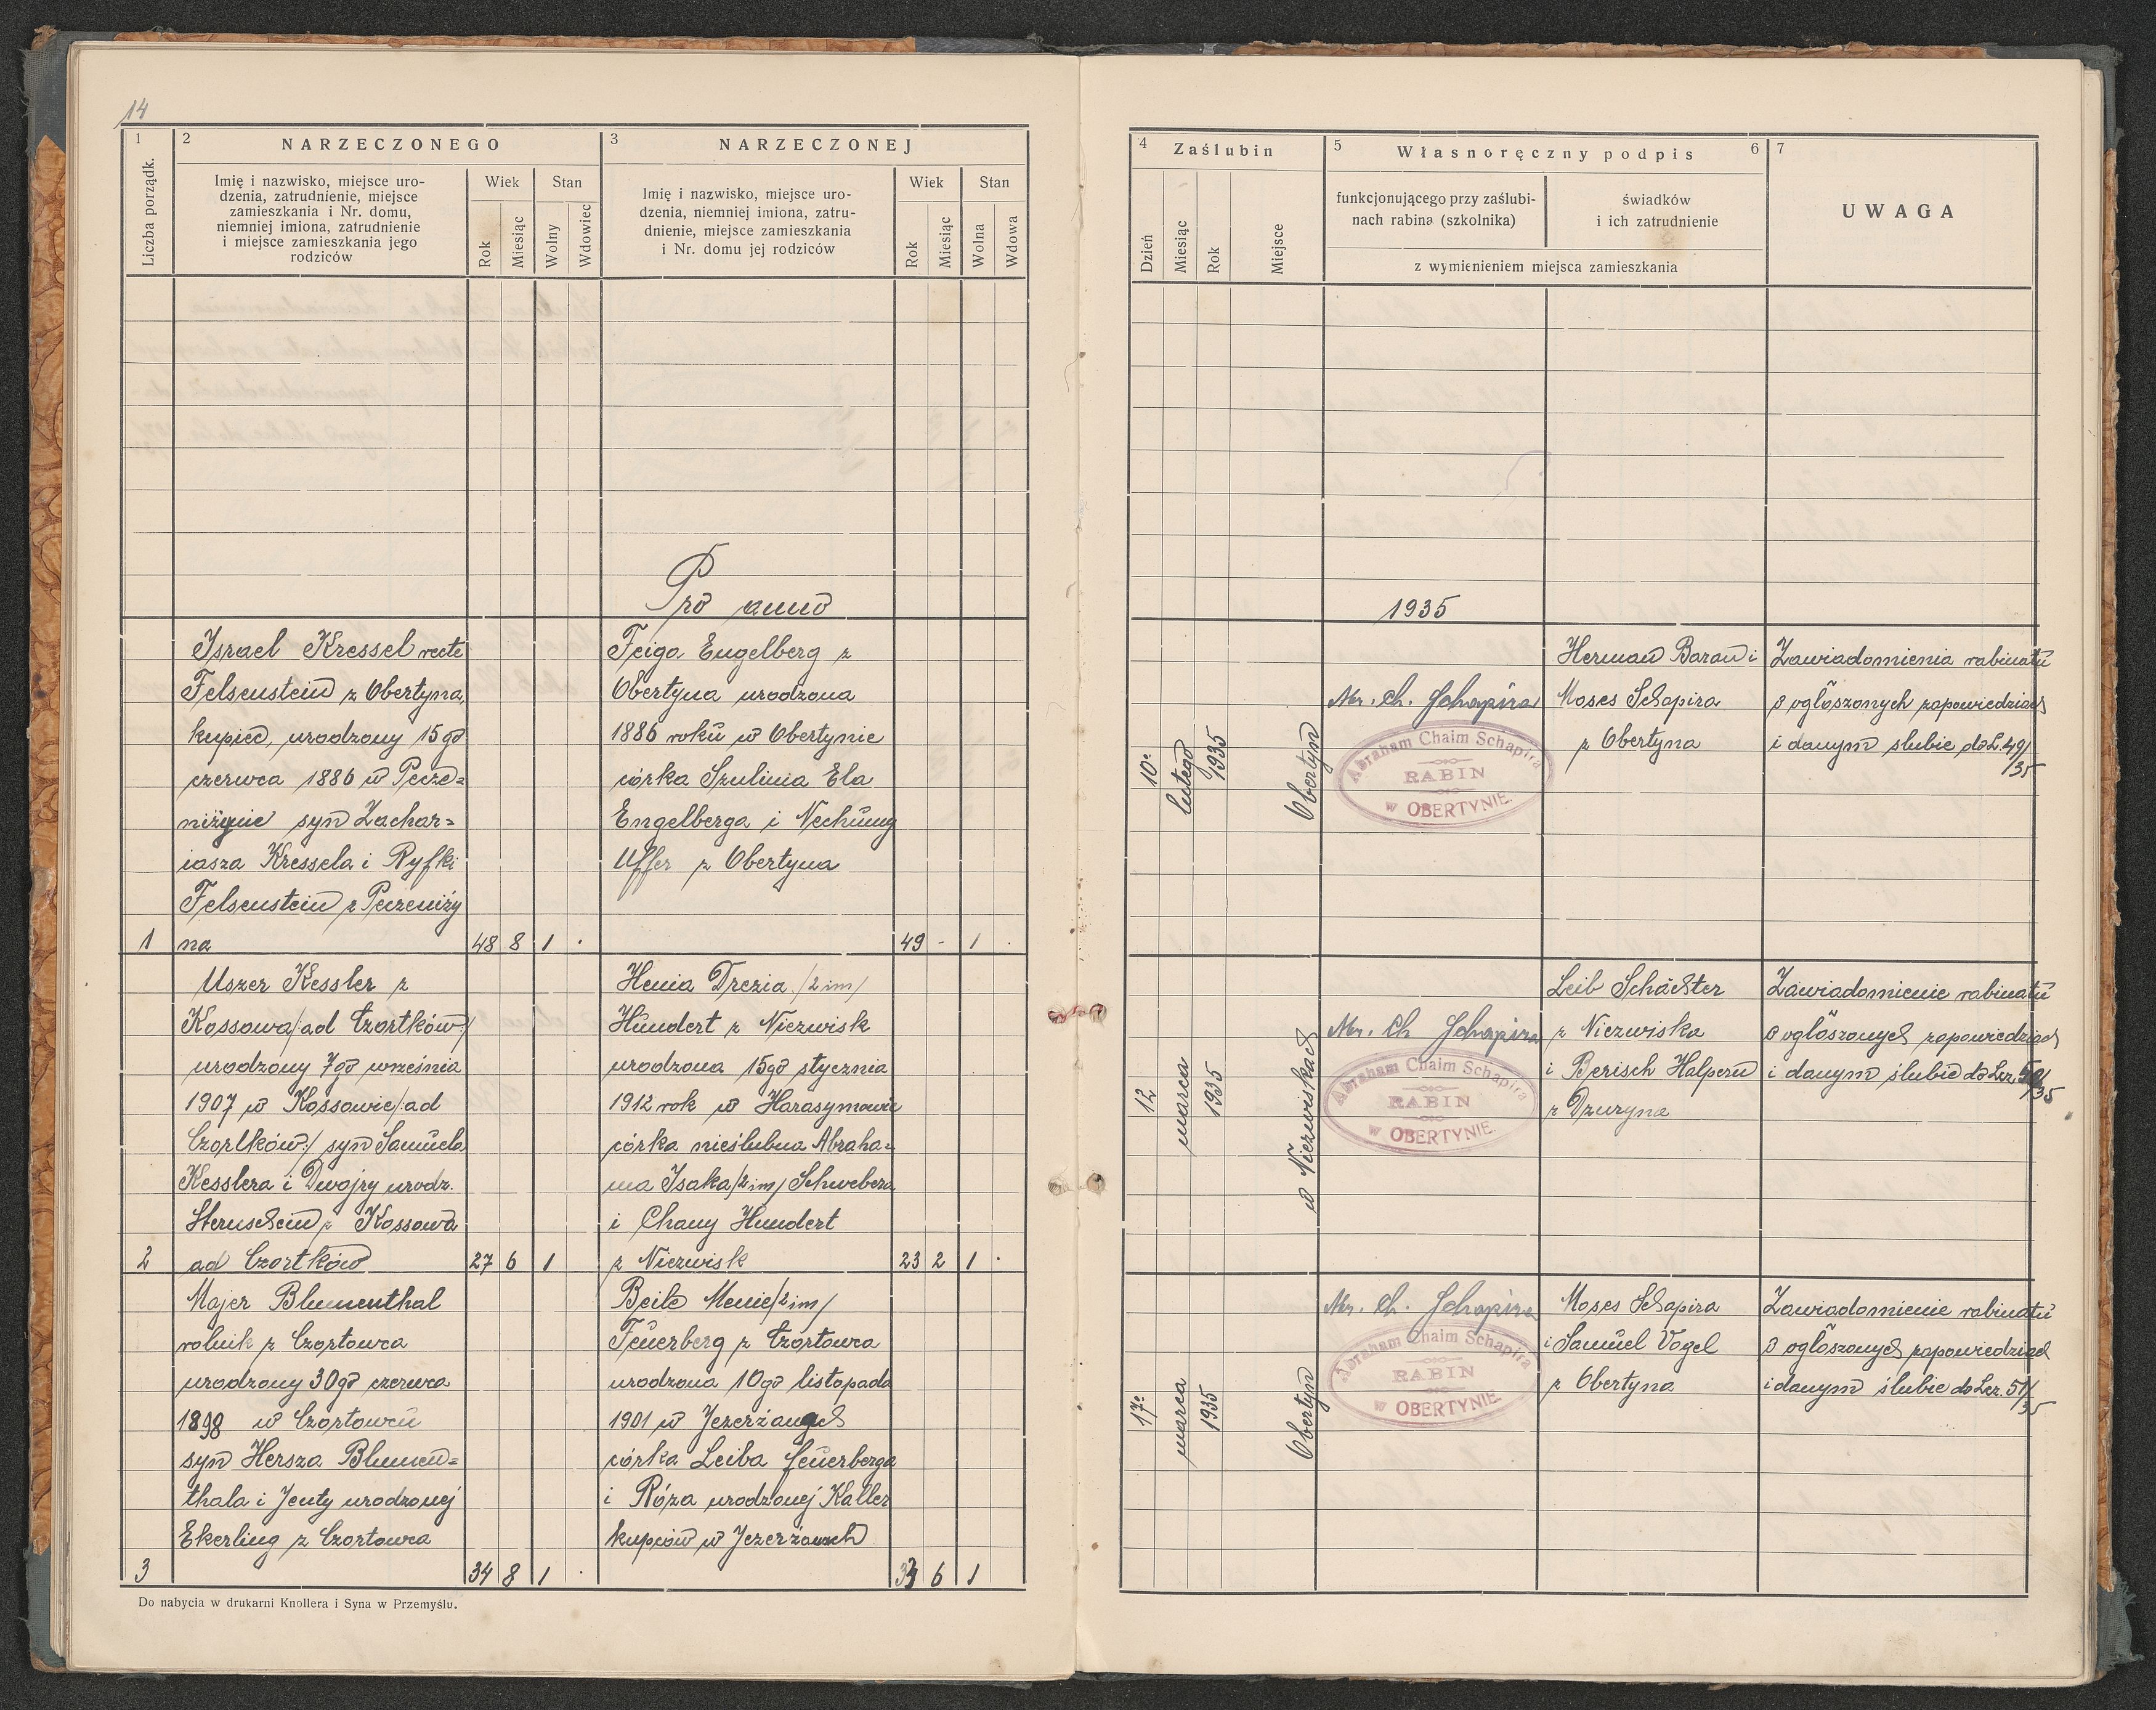 14
1
2
NARZECZONEGO
3
NARZECZONEJ
Liczba porządk.
Imię i nazwisko, miejsce uro-
dzenia, zatrudnienie, miejsce
zamieszkania i Nr. domu,
niemniej imiona, zatrudnienie
i miejsce zamieszkania jego
rodziców
Wiek
Stan
Rok
Miesiąc
Wolny
Wdowiec
Imię i nazwisko, miejsce uro-
dzenia, niemniej imiona, zatru-
dnienie, miejsce zamieszkania
i Nr. domu jej rodziców
Wiek
Stan
Rok
Miesiąc
Wolna
Wdowa
Pro anno
Israel Kressel recte
Felsenstein z Obertyna,
kupiec, urodzony 15go
czerwca 1886 w Pecze=
niżynie syn Zachar=
iasza Kressela i Ryfki
Felsenstein z Peczeniży
1 na 48 8 1 .
Feiga Engelberg z
Obertyna urodzona
1886 roku w Obertynie
córka Szulima Ela
Engelberga i Nechumy
Uffer z Obertyna
49 - 1 .
Uszer Kessler z
Kossowa/:ad Czortków:/
urodzony 7go września
1907 w Kossowie/:ad
Czortków:/ syn Samuela
Kesslera i Dwojry urodz.
Sternschein z Kossowa
2 ad Czortków 27 6 1
Henia Drezia /2 im/
Hundert z Niezwisk
urodzona 15go stycznia
1912 rok w Harasymowie
córka nieślubna Abraha=
ma Isaka /2 im/ Schwebera
i Chany Hundert
z Niezwisk 23 2 1 .
Majer Blumenthal
rolnik z Czortowca
urodzony 30go czerwca
1898 w Czortowcu
syn Hersza Blumen=
thala i Jenty urodzonej
Ekerling z Czortowca
3 34 8 1 .
Beile Menie /2 im/
Feuerberg z Czortowca
urodzona 10go listopada
1901 w Jezierżanach
córka Leiba Feuerberga
i Róza urodzonej Kaller
kupców w Jezierżanach
33 6 1
Do nabycia w drukarni Knollera i Syna w Przemyślu.
4
Zaślubin
5
Własnoręczny podpis
6
7
Dzień
Miesiąc
Rok
Miejsce
funkcjonującego przy zaślubi-
nach rabina (szkolnika)
świadków
i ich zatrudnienie
z wymienieniem miejsca zamieszkania
UWAGA
1935
10
lutego
1935
Obertyn
Abr. Ch. Schapira
Abraham Chaim Schapira
RABIN
w OBERTYNIE.
Herman Baran i
Moses Schapira
z Obertyna
Zawiadomienia rabinatu
o ogłoszonych zapowiedziach
i danym slubie do L. 49/
/35
12
marca
1935
w Niezwiskach
Abr. Ch Schapira
Abraham Chaim Schapira
RABIN
w OBERTYNIE.
Leib Schächter
z Niezwiska
i Berisch Halpern
z Dzuryna
Zawiadomienie rabinatu
o ogłoszonych zapowiedziach
i danym ślubie do Lcz. 50/
/35
17
marca
1935
Obertyn
Abr. Ch. Schapira
Abraham Chaim Schapira
RABIN
w OBERTYNIE.
Moses Schapira
i Samuel Vogel
z Obertyna
Zawiadomienie rabinatu
o ogłoszonych zapowiedziach
i danym ślubie do Lcz. 51/
/35